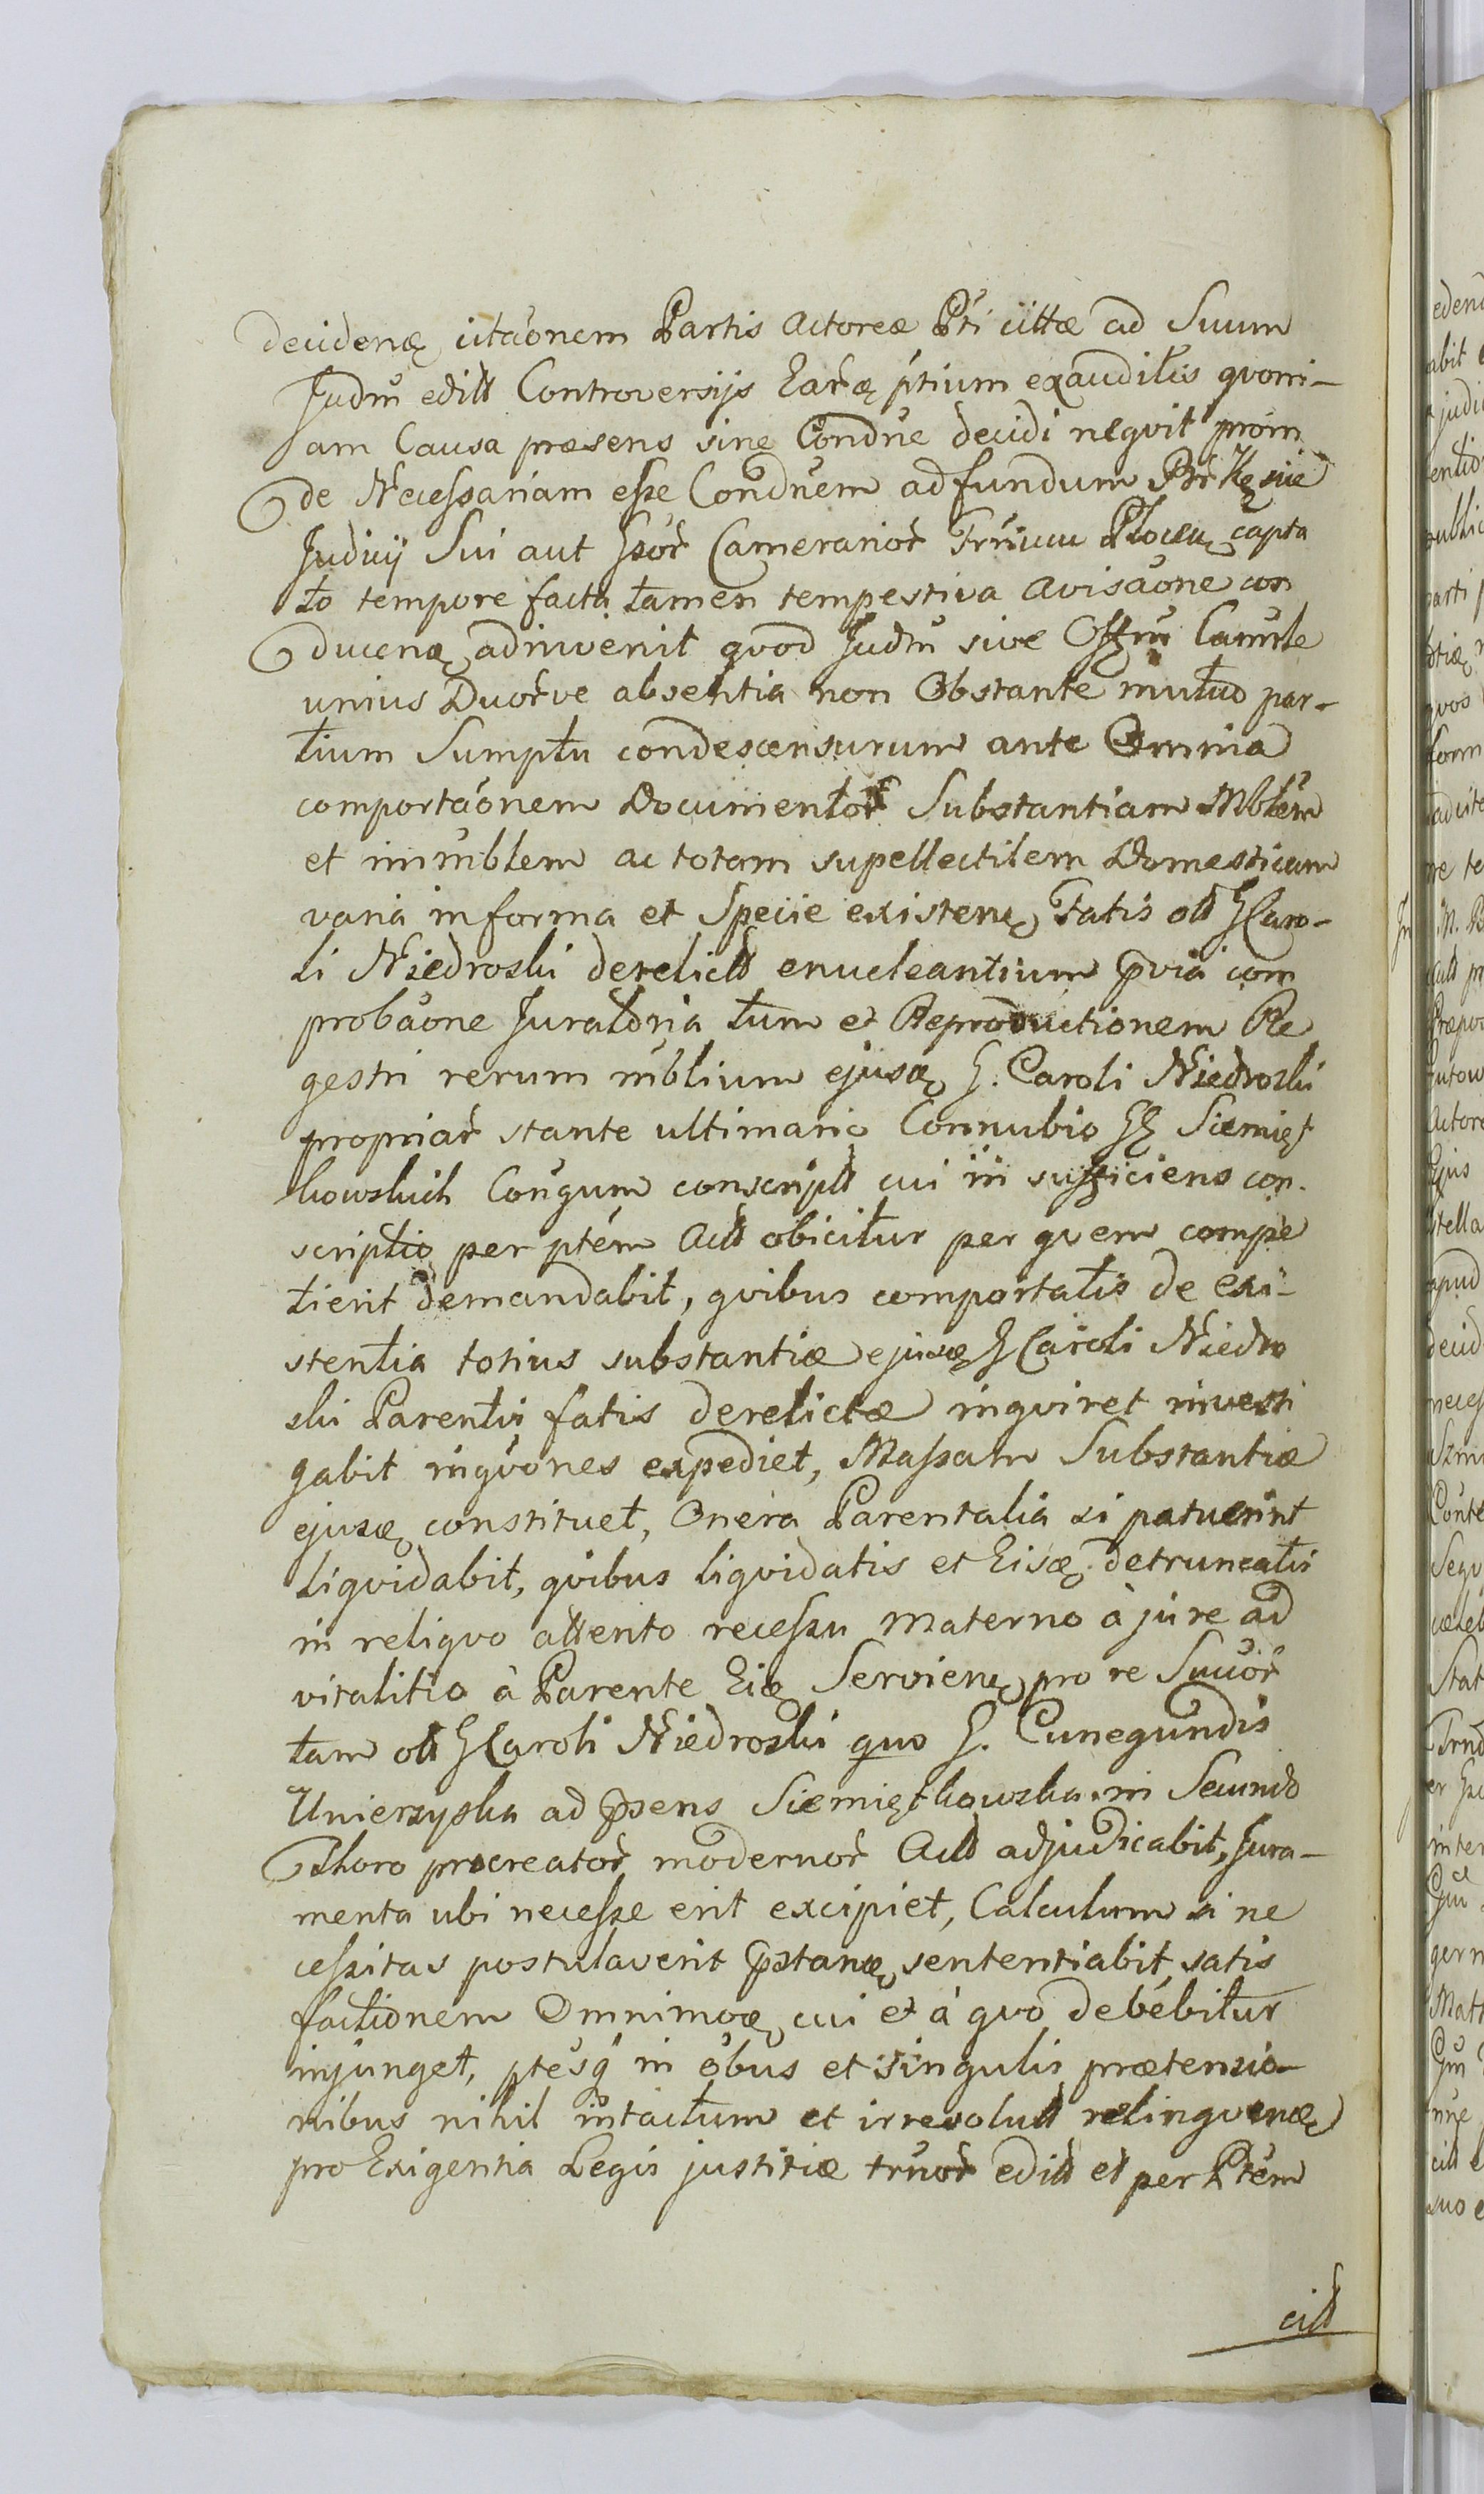 decidenæ citaonem Partis Actoreæ Pti cittæ ad Suum
Judm editt Controversijs Earæ ptium exauditis qvoni-
am Causa præsens sine Condne decidi neqvit proin
de Necessariam esse Condnem ad fundum
Judicij Sui aut Camerarior capta
to tempore facta tamen tempestiva avisaone con
ducenæ adinvenit qvod Judm sive Offm Camrle
unius Duorve absentia non Obstante mutuo par-
tium Sumptu condescensurum ante Omnia
comportaonem Documentor Substantiam Mblem
et immblem ac totam supellectilem Domesticam
varia in forma et Specie existenæ Fatis ott G Caro-
li Niedroski derelictt enucleantium pvia com
probaone Juratoria tum et Reproductionem Re
gestri rerum mblium ejusæ G. Caroli Niedroski
propriar stante ultimario Connubio GG Siemięt
kowskich Congum conscriptt cui in sufficiens con.
scriptio per ptem Actt obicitur per qvem compe
tierit demandabit, qvibus comportatis de exi-
stentia totius substantiæ ejusæ G Caroli Niedro
ski Parentis fatis derelictæ inqviret investi
gabit inqvones expediet, Massam Substantiæ
ejusæ constituet, Onera Parentalia si patuerint
liqvidabit, qvibus liqvidatis et Eisæ detruncatis
in reliqvo attento recessu materno à jure ad
vitalitio à Parente Eiæ Servienæ pro re Succor
tam ott G Caroli Niedroski quo G. Cunegundis
Unierzyska ad psens Siemiętkowska in Secundo
Thoro procreator modernor Actt adjudicabit, Jura-
menta ubi necesse erit excipiet, Calculum si ne
cessitas postulaverit pstanæ sententiabit satis
factionem Omnimoæ cui et à qvo debebitur
injunget, ptesq in obus et singulis prætensio-
nibus nihil intactum et irresolutt relinqvenæ
pro Exigentia Legis justitiæ trnor editt et per Ptem
citt